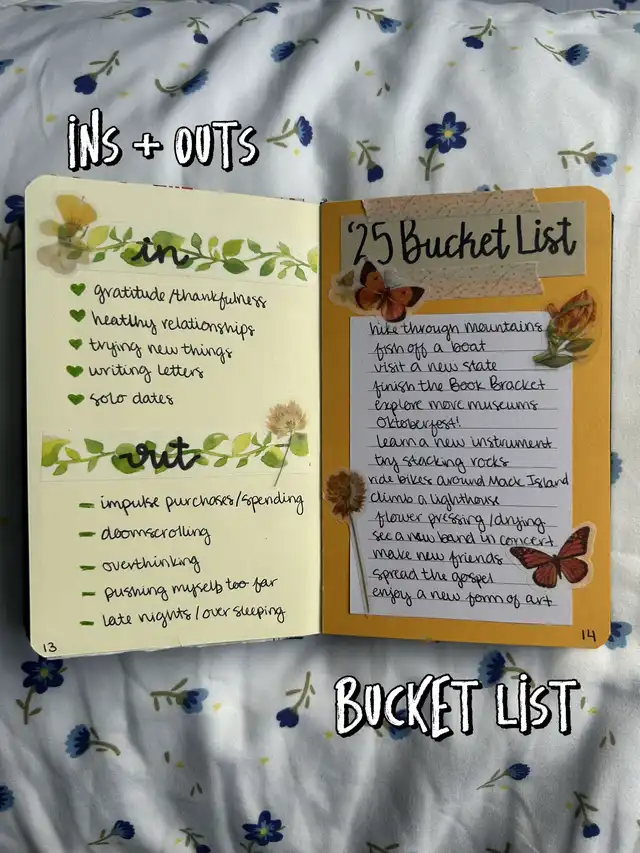 INS + OUTS
in
gratitude/thankfulness
healthy relationships
trying new things
writing letters
solo dates
out
impulse purchases/spending
doomscrolling
overthinking
pushing myself too far
late nights/oversleeping
13
'25 Bucket List
hike through mountains
fish off a boat
visit a new state
finish the Book Bracket
explore more museums
Oktoberfest!
learn a new instrument
try stacking rocks
ride bikes around Mack Island
climb a lighthouse
flower pressing/drying
see a new band in concert
make new friends
spread the gospel
enjoy a new form of art
14
BUCKET LIST